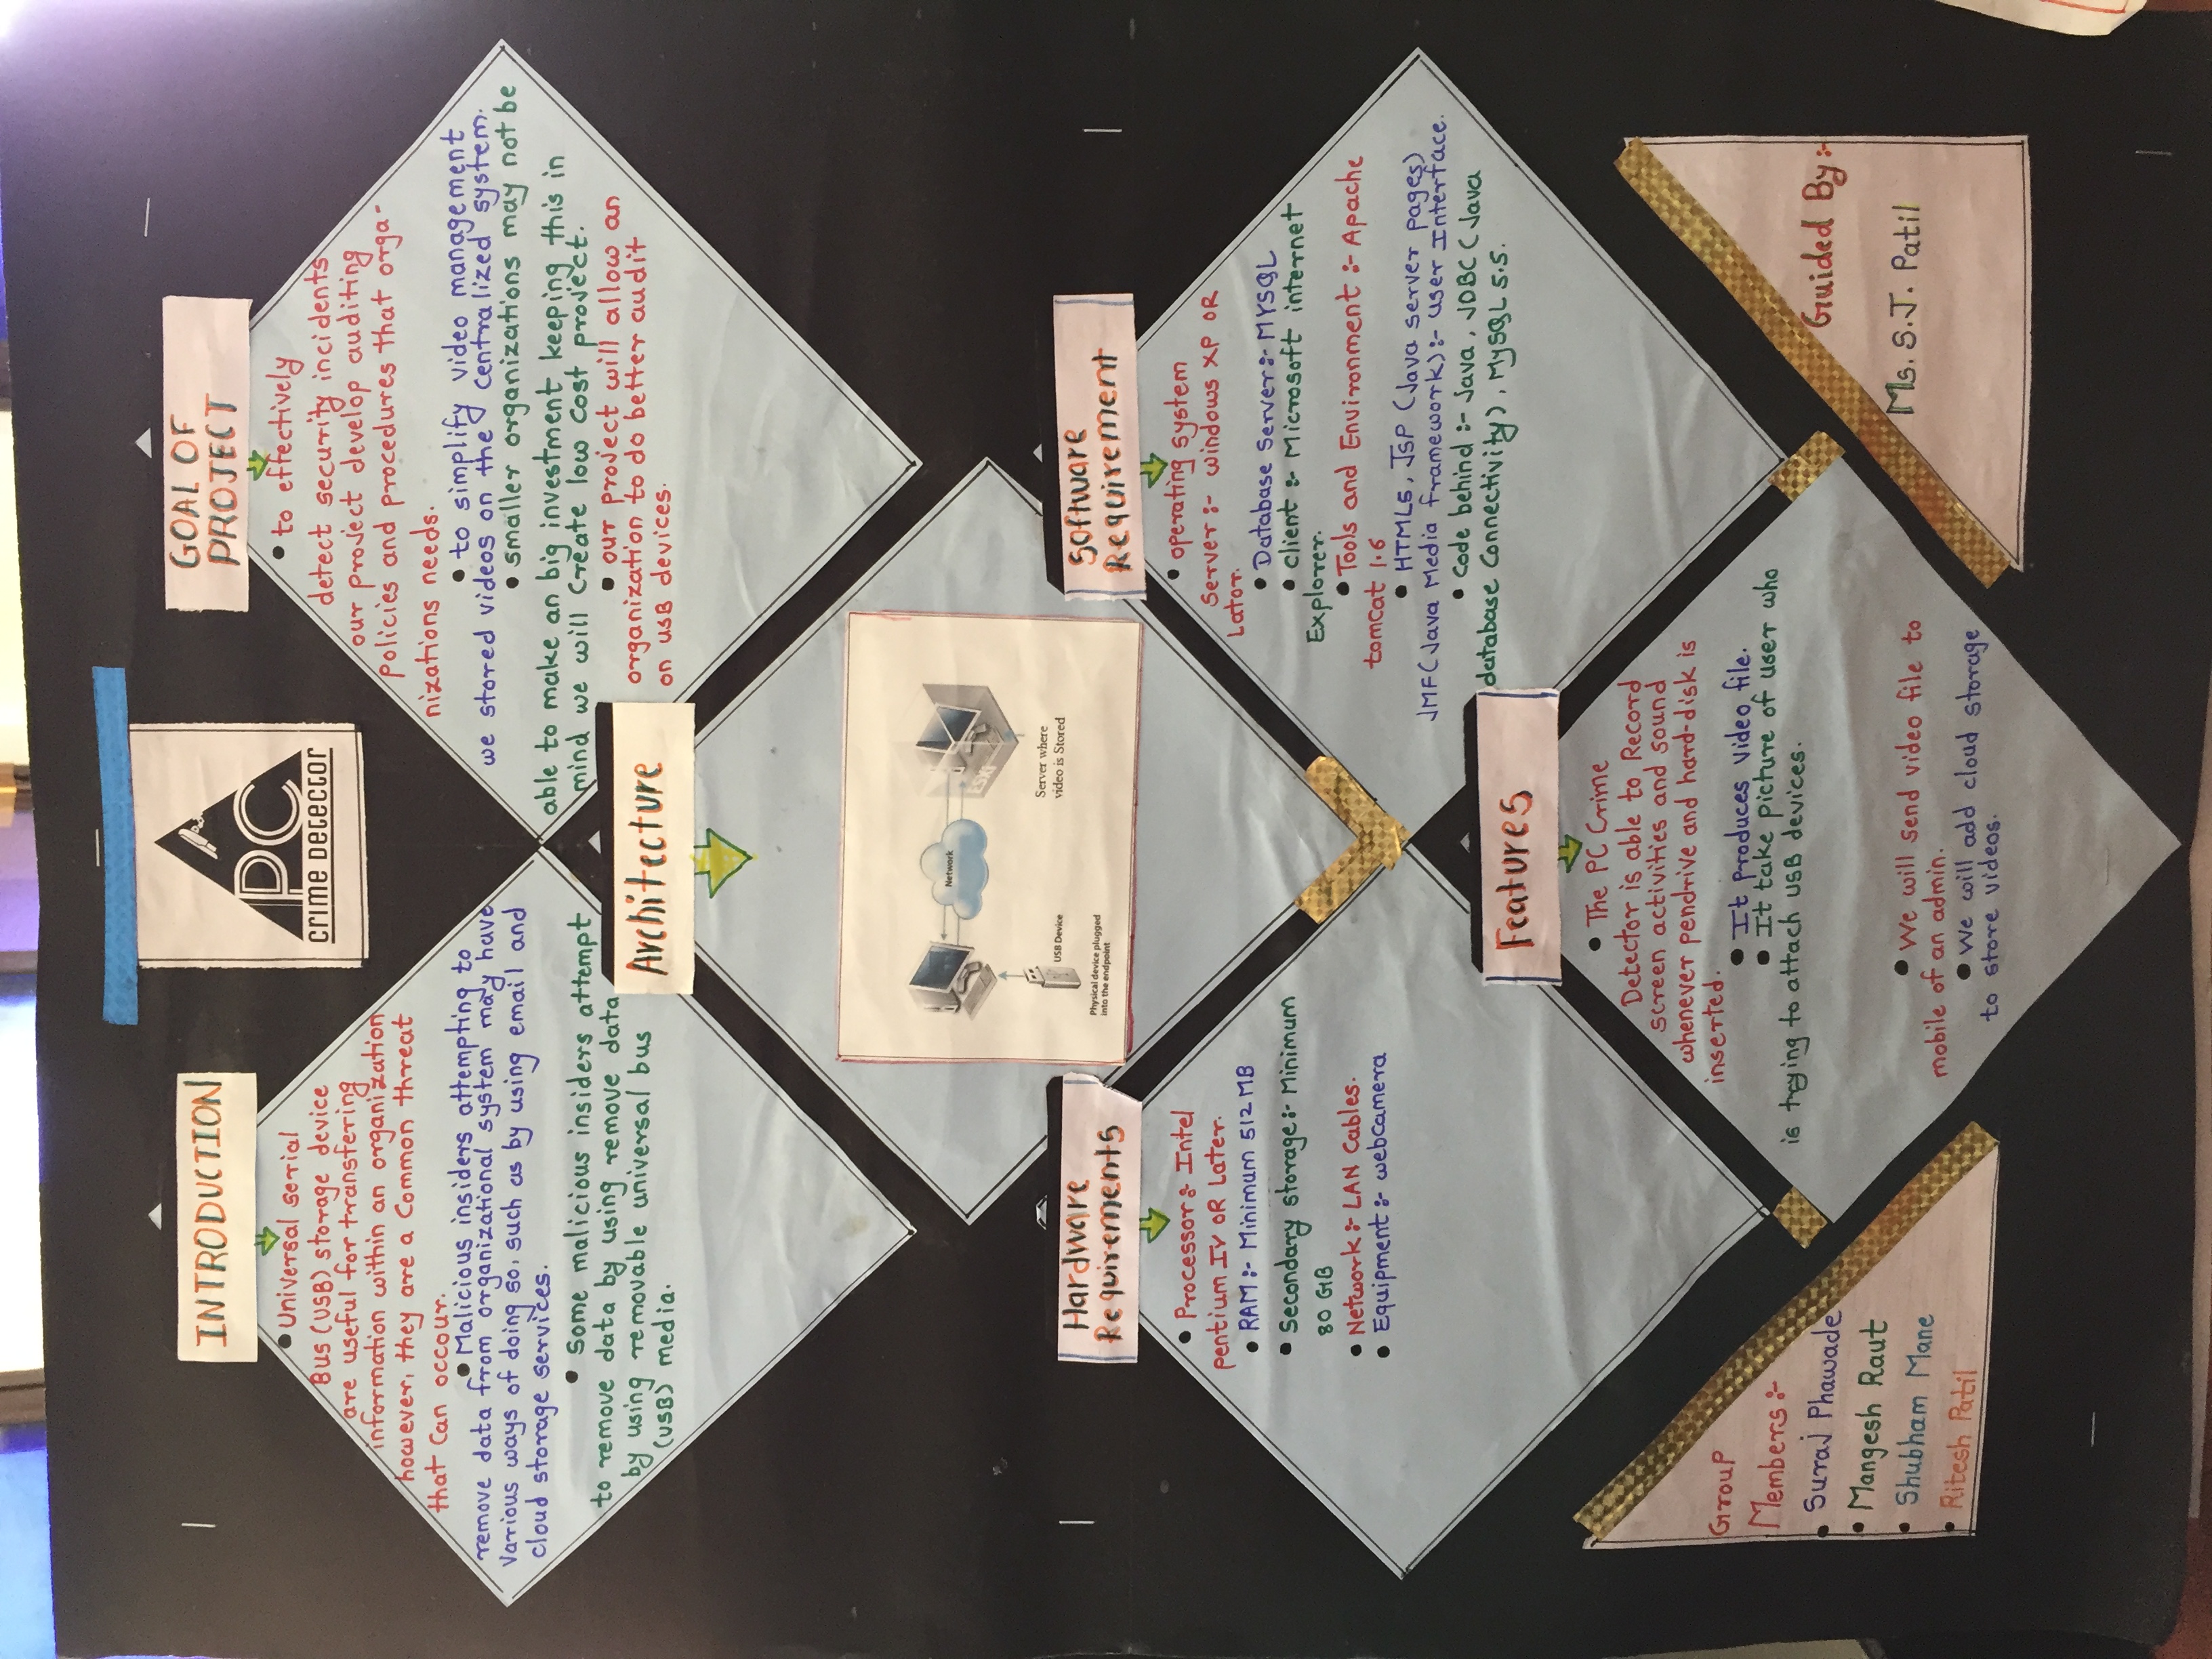 PC
Crime Detector
INTRODUCTION
• Universal serial
Bus (USB) storage device
are useful for transfering
information within an organization
however, they are a Common threat
that Can occour.
• Malicious insiders attempting to
remove data from organizational system may have
Various ways of doing so, such as by using email and
cloud storage services.
• Some malicious insiders attempt
to remove data by using remove data
by using removable universal bus
(USB) media.
GOAL OF
PROJECT
• to effectively
detect security incidents
our project develop auditing
policies and procedures that orga-
nizations needs.
• to simplify video management
we stored videos on the centralized system.
• smaller organizations may not be
able to make an big investment keeping this in
mind we will Create low Cost project.
• our project will allow an
organization to do better audit
on USB devices.
Architecture
Network
ESXi
USB Device
Physical device plugged
into the endpoint
Server where
video is Stored
Hardware
Requirements
• Processor :- Intel
pentium IV OR Later.
• RAM :- Minimum 512 MB
• Secondary storage :- Minimum
80 GB
• Network :- LAN Cables.
• Equipment :- webcamera
Software
Requirement
• operating system
Server :- windows XP OR
Lator.
• Database server :- MYSQL
• client :- Microsoft internet
Explorer.
• Tools and Environment :- Apache
tomcat 1.6
• HTMLs, JSP (Java server pages)
JMF (Java Media framework) :- user Interface.
• Code behind :- Java, JDBC (Java
database Connectivity), MySQL 5.5.
Features
• The PC Crime
Detector is able to Record
screen activities and sound
whenever pendrive and hard-disk is
inserted.
• It produces video file.
• It take picture of user who
is trying to attach USB devices.
• We will send video file to
mobile of an admin.
• We will add cloud storage
to store videos.
Group
Members :-
• Suraj Phawade
• Mangesh Raut
• Shubham Mane
• Ritesh Patil
Guided By :-
Ms. S.J. Patil